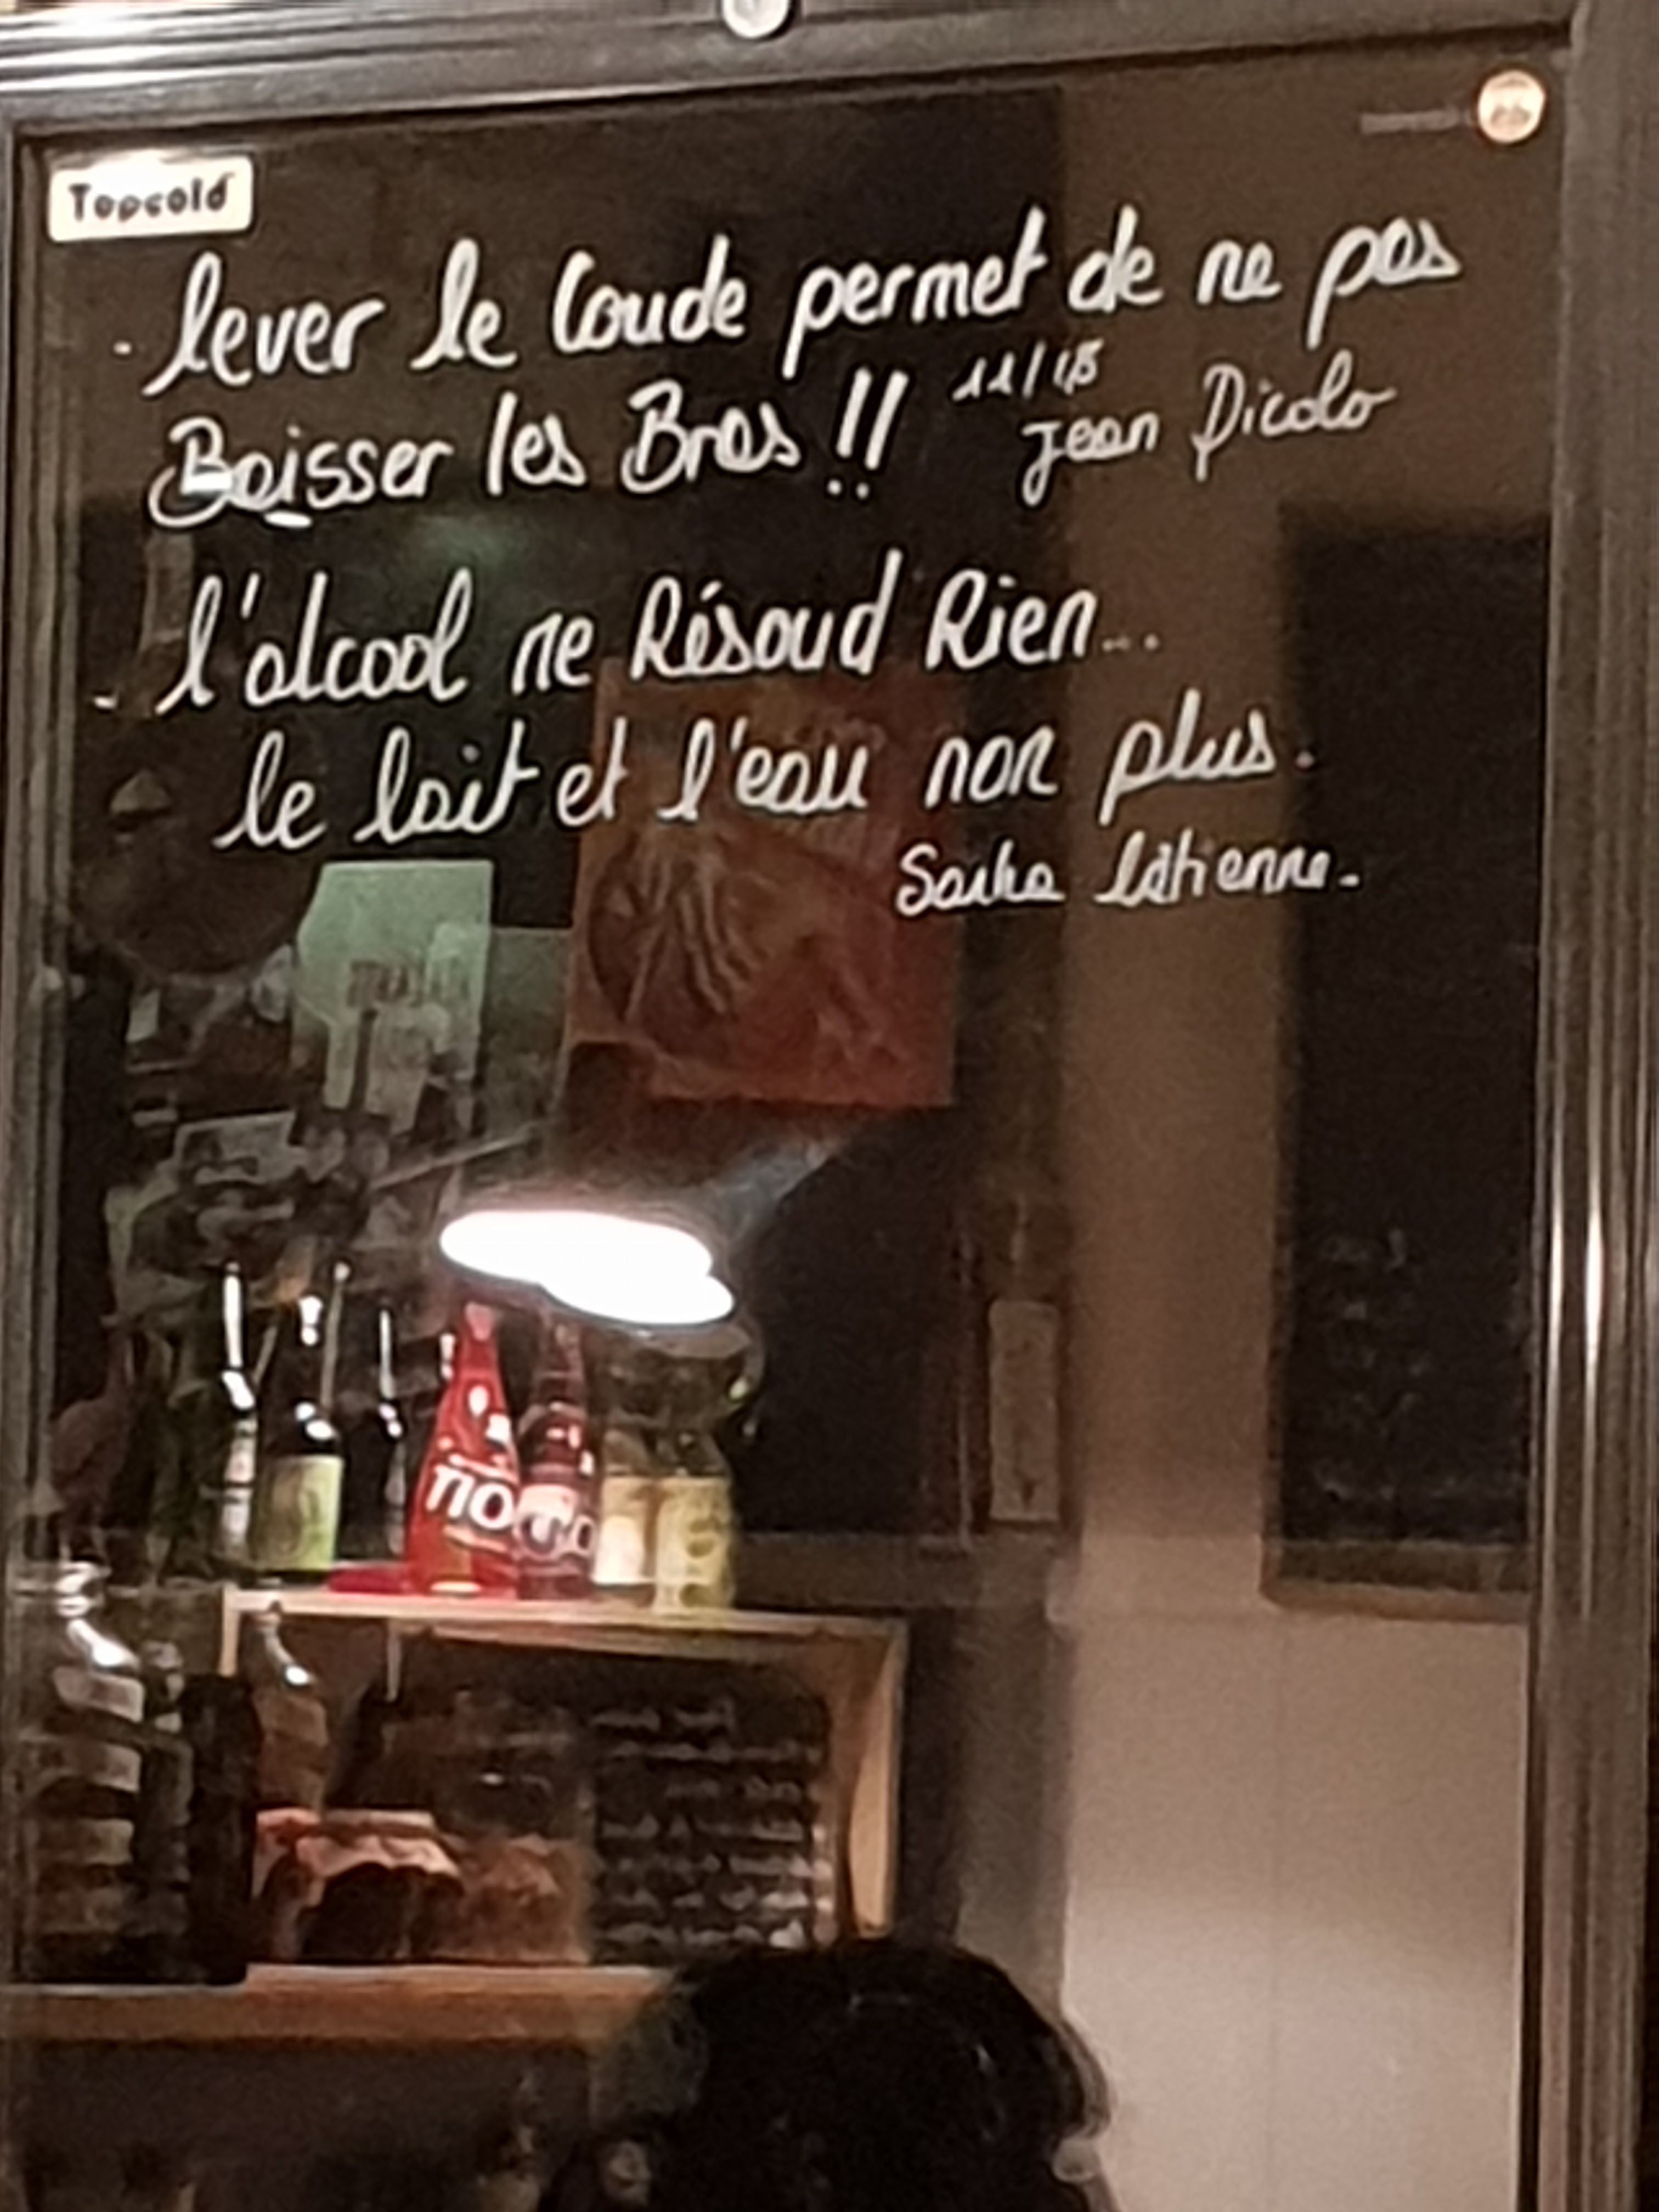 Topcold
- lever le Coude permet de ne pas
Baisser les Bras !! 11/15
Jean Picolo
- l'alcool ne Résoud Rien...
le lait et l'eau non plus.